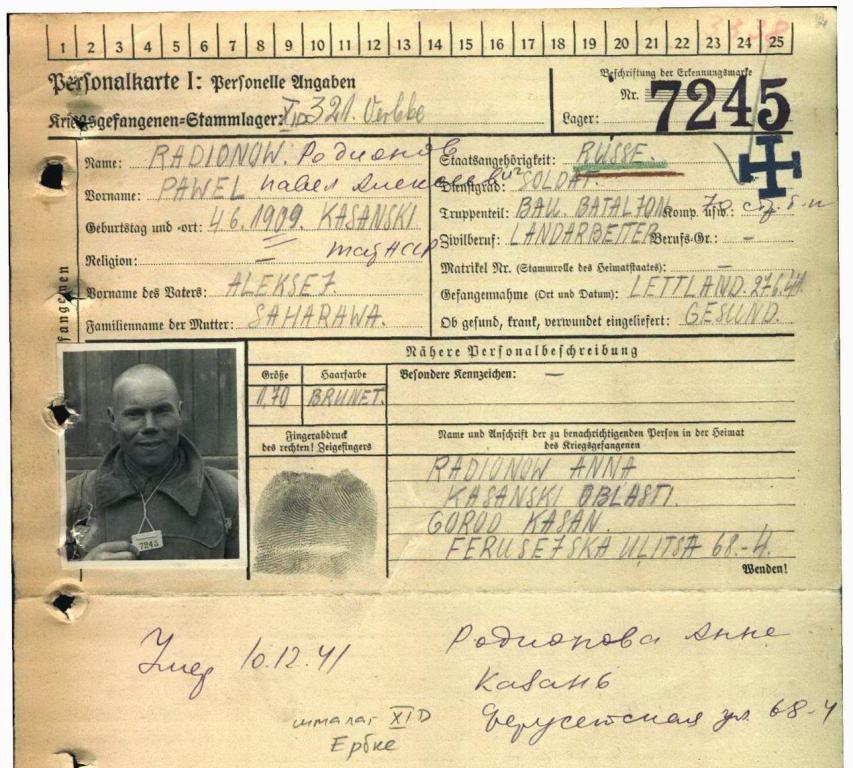 1 2 3 4 5 6 7 8 9 10 11 12 13 14 15 16 17 18 19 20 21 22 23 24 25
Personalkarte I: Personelle Angaben
Kriegsgefangenen=Stammlager: XID 321
Beschriftung der Erkennungsmarke
Nr. 7245
Lager:
Name: RADIONOW. Родионов
Vorname: PAWEL Павел Алексеевич
Geburtstag und -ort: 4.6.1909. KASANSKI
Religion: —
Vorname des Vaters: ALEKSEJ
Familienname der Mutter: SAHARAWA.
Staatsangehörigkeit: RUSSE.
Dienstgrad: SOLDAT.
Truppenteil: BAU. BATALJON Komp. usw.:
Zivilberuf: LANDARBEITER Berufs-Gr.: —
Matrikel Nr. (Stammrolle des Heimatstaates): —
Gefangennahme (Ort und Datum): LETTLAND. 27.6.41.
Ob gesund, krank, verwundet eingeliefert: GESUND.
fangenen
7245
Nähere Personalbeschreibung
Größe Haarfarbe Besondere Kennzeichen: —
1,70 BRUNET.
Fingerabdruck
des rechten! Zeigefingers
Name und Anschrift der zu benachrichtigenden Person in der Heimat
des Kriegsgefangenen
RADIONOW ANNA
KASANSKI OBLASTI.
GOROD KASAN.
FERUSEJSKA ULITSA 68.-4.
Wenden!
Умер 10.12.41
Родионова Анне
Казань
Ферусетская ул. 68-4
шталаг XI D
Ербке